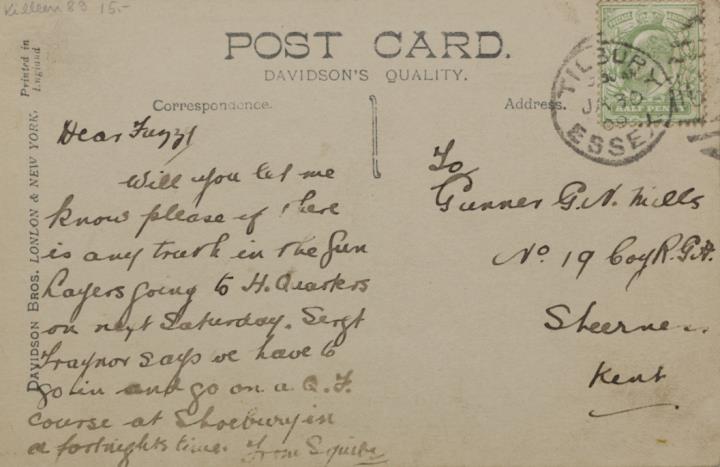 Killeen 89 15.-
POST CARD.
DAVIDSON'S QUALITY.
Correspondence.
Address.
Printed in
England
DAVIDSON BROS. LONDON & NEW YORK.
TILBURY
JA 30
09
ESSEX
HALF PENNY
Dear Fuzzy
Will you let me
know please if there
is any truth in the Gun
Layers going to H. Quarters
on next Saturday. Sergt
Traynor says we have to
go in and go on a Q.F.
course at Shoebury in
a fortnights time. From Squibs
To
Gunner G.N. Mills
No 19 Coy R.G.A.
Sheerness
Kent